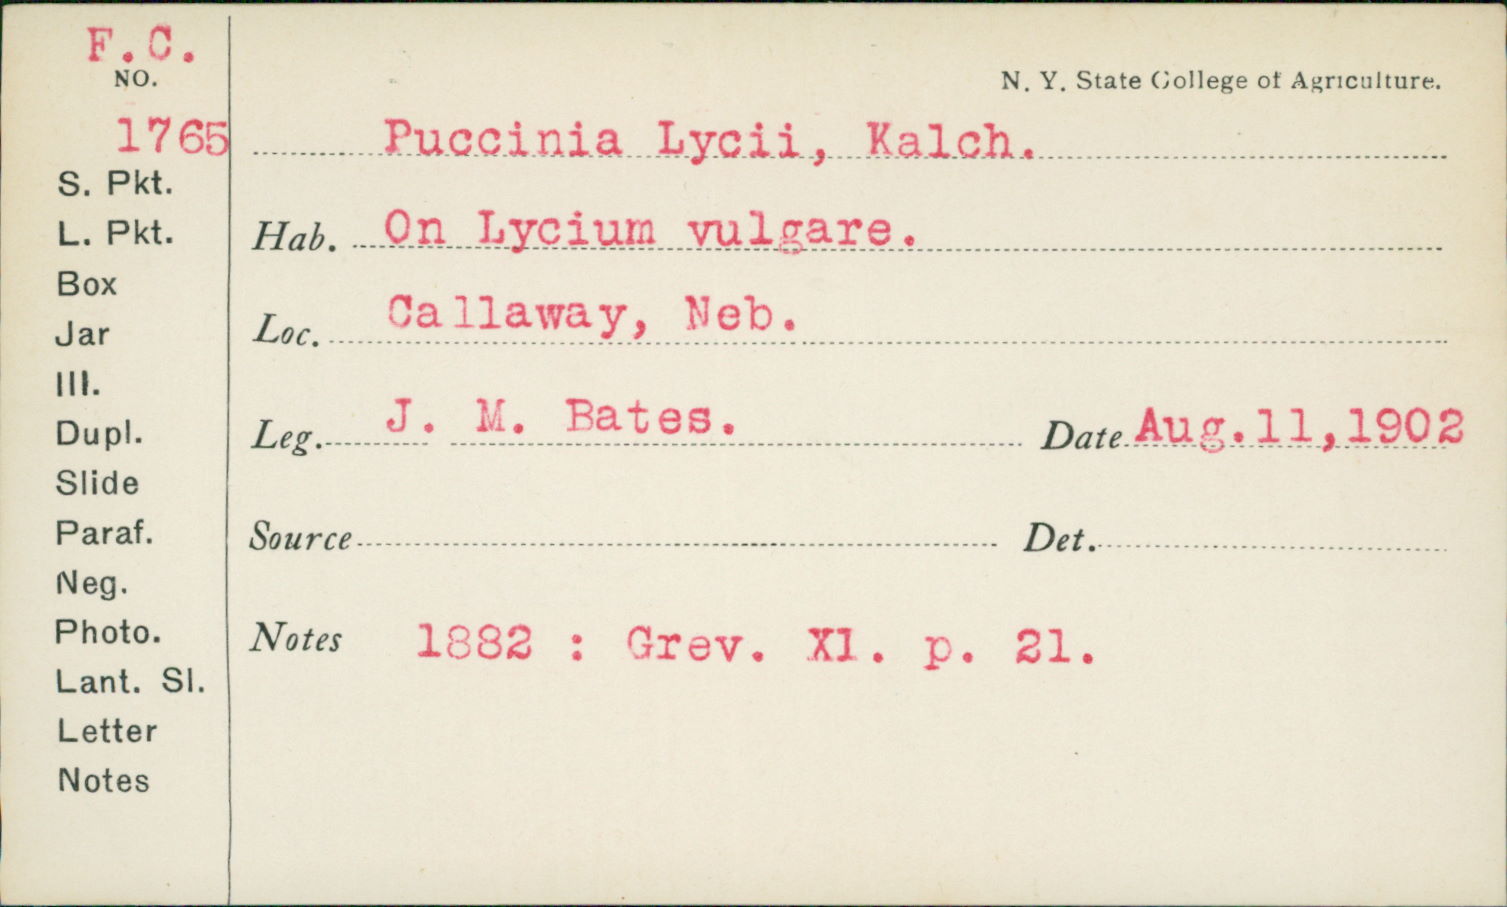 F.C.
NO.
1765
S. Pkt.
L. Pkt.
Box
Jar
Ill.
Dupl.
Slide
Paraf.
Neg.
Photo.
Lant. Sl.
Letter
Notes
N. Y. State College of Agriculture.
Puccinia Lycii, Kalch.
Hab. On Lycium vulgare.
Loc. Callaway, Neb.
Leg. J. M. Bates. Date Aug.11,1902
Source Det.
Notes 1882 : Grev. XI. p. 21.